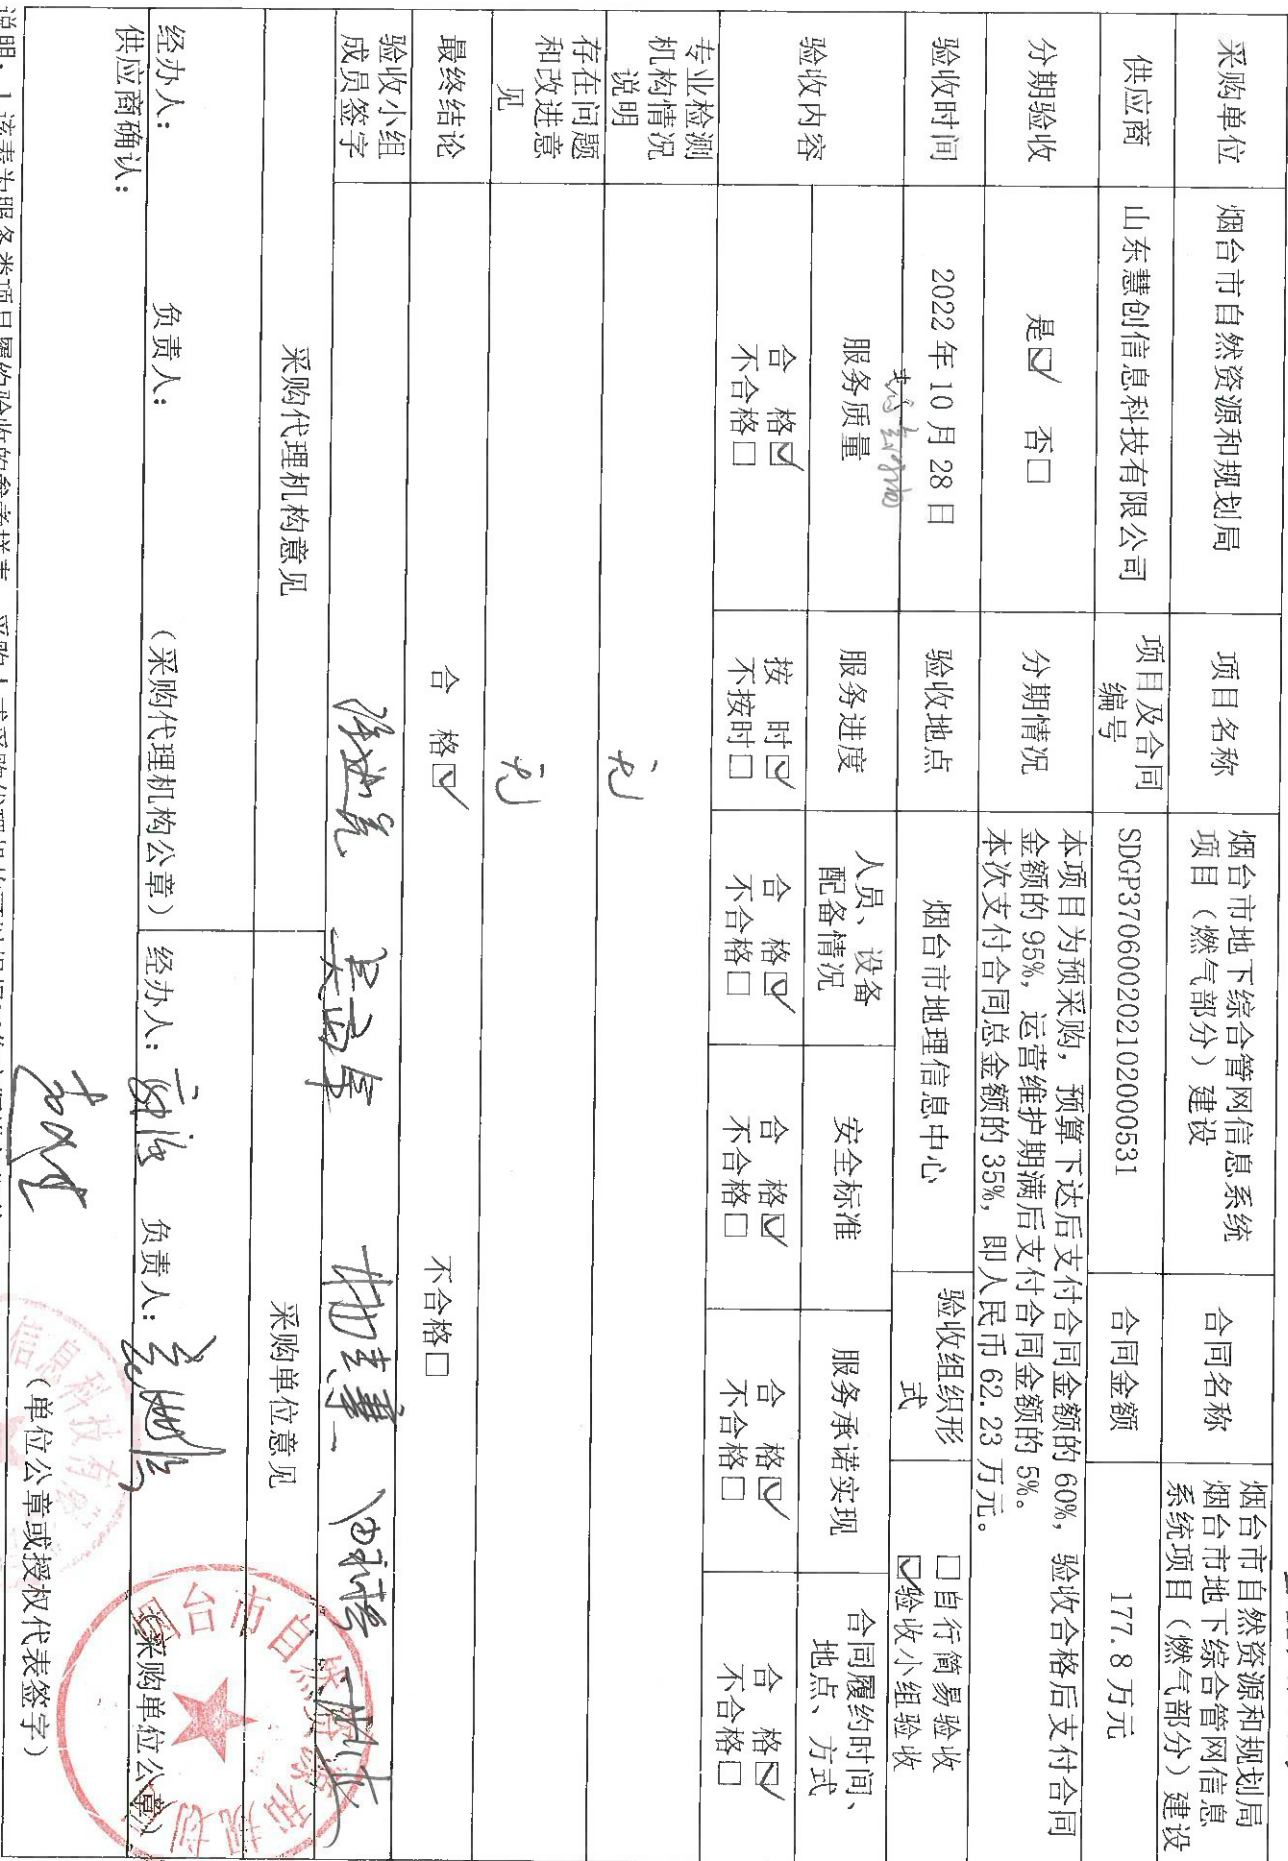 采购单位
烟台市自然资源和规划局
项目名称
烟台市地下综合管网信息系统
项目（燃气部分）建设
合同名称
烟台市自然资源和规划局
烟台市地下综合管网信息
系统项目（燃气部分）建设
供应商
山东慧创信息科技有限公司
项目及合同
编号
SDGP370600202102000531
合同金额
177.8 万元
分期验收
是☑ 否□
分期情况
本项目为预采购，预算下达后支付合同金额的 60%，验收合格后支付合同
金额的 95%，运营维护期满后支付合同金额的 5%。
本次支付合同总金额的 35%，即人民币 62.23 万元。
验收时间
2022 年 10 月 28 日
验收地点
烟台市地理信息中心
验收组织形
式
□自行简易验收
☑验收小组验收
验收内容
服务质量
服务进度
人员、设备
配备情况
安全标准
服务承诺实现
合同履约时间、
地点、方式
合 格☑
不合格□
按 时☑
不按时□
合 格☑
不合格□
合 格☑
不合格□
合 格☑
不合格□
合 格☑
不合格□
专业检测
机构情况
说明
无
存在问题
和改进意
见
无
最终结论
合 格☑
不合格□
验收小组
成员签字
采购代理机构意见
采购单位意见
经办人：
负责人：
（采购代理机构公章）
经办人：
负责人：
（采购单位公章）
供应商确认：
（单位公章或授权代表签字）